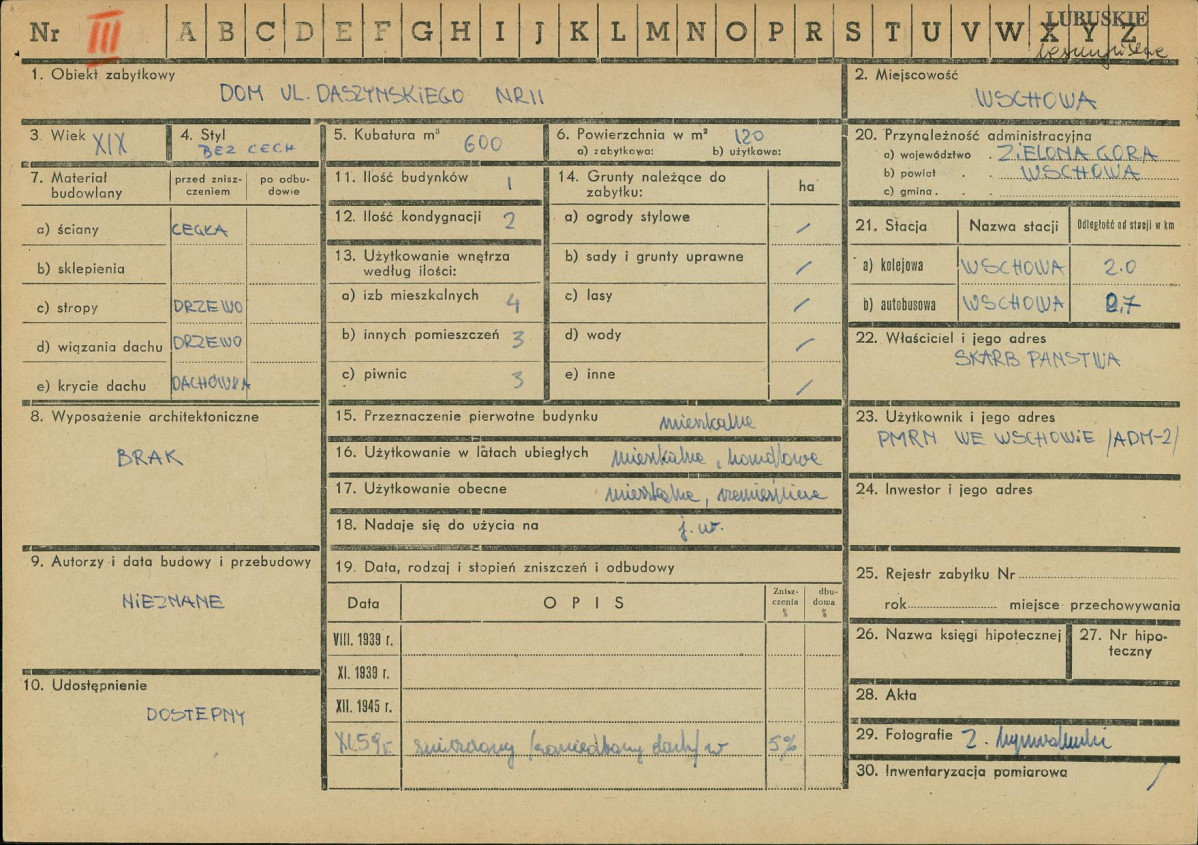 Nr III A B C D E F G H I J K L M N O P R S T U V W X Y Z
LUBUSKIE
1. Obiekt zabytkowy
DOM UL. DASZYŃSKIEGO NR 11
2. Miejscowość
WSCHOWA
3. Wiek XIX
4. Styl
BEZ CECH
5. Kubatura m³ 600
6. Powierzchnia w m² 120
a) zabytkowa: b) użytkowa:
20. Przynależność administracyjna
a) województwo . ZIELONA GÓRA
b) powiat . . WSCHOWA
c) gmina . .
7. Materiał budowlany
przed znisz-
czeniem
po odbu-
dowie
a) ściany CEGŁA
b) sklepienia
c) stropy DRZEWO
d) wiązania dachu DRZEWO
e) krycie dachu DACHÓWKA
11. Ilość budynków 1
12. Ilość kondygnacji 2
13. Użytkowanie wnętrza
według ilości:
a) izb mieszkalnych 4
b) innych pomieszczeń 3
c) piwnic 3
14. Grunty należące do
zabytku: ha
a) ogrody stylowe /
b) sady i grunty uprawne /
c) lasy /
d) wody /
e) inne /
21. Stacja Nazwa stacji Odległość od stacji w km
a) kolejowa WSCHOWA 2.0
b) autobusowa WSCHOWA 2,7
22. Właściciel i jego adres
SKARB PAŃSTWA
8. Wyposażenie architektoniczne
BRAK
15. Przeznaczenie pierwotne budynku mieszkalne
16. Użytkowanie w latach ubiegłych mieszkalne, handlowe
17. Użytkowanie obecne mieszkalne, rzemieślnicze
18. Nadaje się do użycia na j. w.
23. Użytkownik i jego adres
PMRN WE WSCHOWIE /ADM-2/
24. Inwestor i jego adres
9. Autorzy i data budowy i przebudowy
NIEZNANE
10. Udostępnienie
DOSTĘPNY
19. Data, rodzaj i stopień zniszczeń i odbudowy
Data OPIS
Znisz-
czenia
%
dbu-
dowa
%
VIII. 1939 r.
XI. 1939 r.
XII. 1945 r.
XI.59r. /zaniedbany dach/ w 5%
25. Rejestr zabytku Nr
rok miejsce przechowywania
26. Nazwa księgi hipotecznej
27. Nr hipo-
teczny
28. Akta
29. Fotografie Z.
30. Inwentaryzacja pomiarowa /